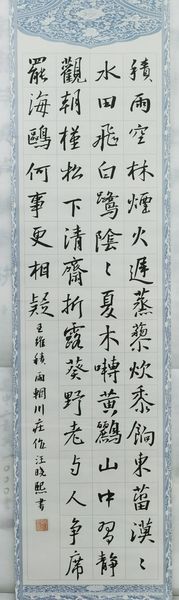 積雨空林煙火遲蒸藜炊黍餉東菑漠〻
水田飛白鷺陰〻夏木囀黃鸝山中習靜
觀朝槿松下清齋折露葵野老与人爭席
罷海鷗何事更相疑 王維積雨輞川莊作汪曉熙書